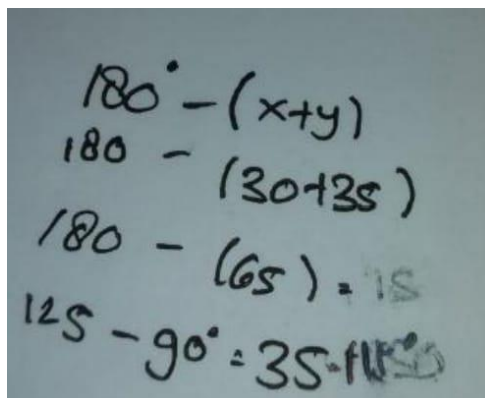 180° - (x+y)
180 - (30+35)
180 - (65) = 15
125 - 90° = 35